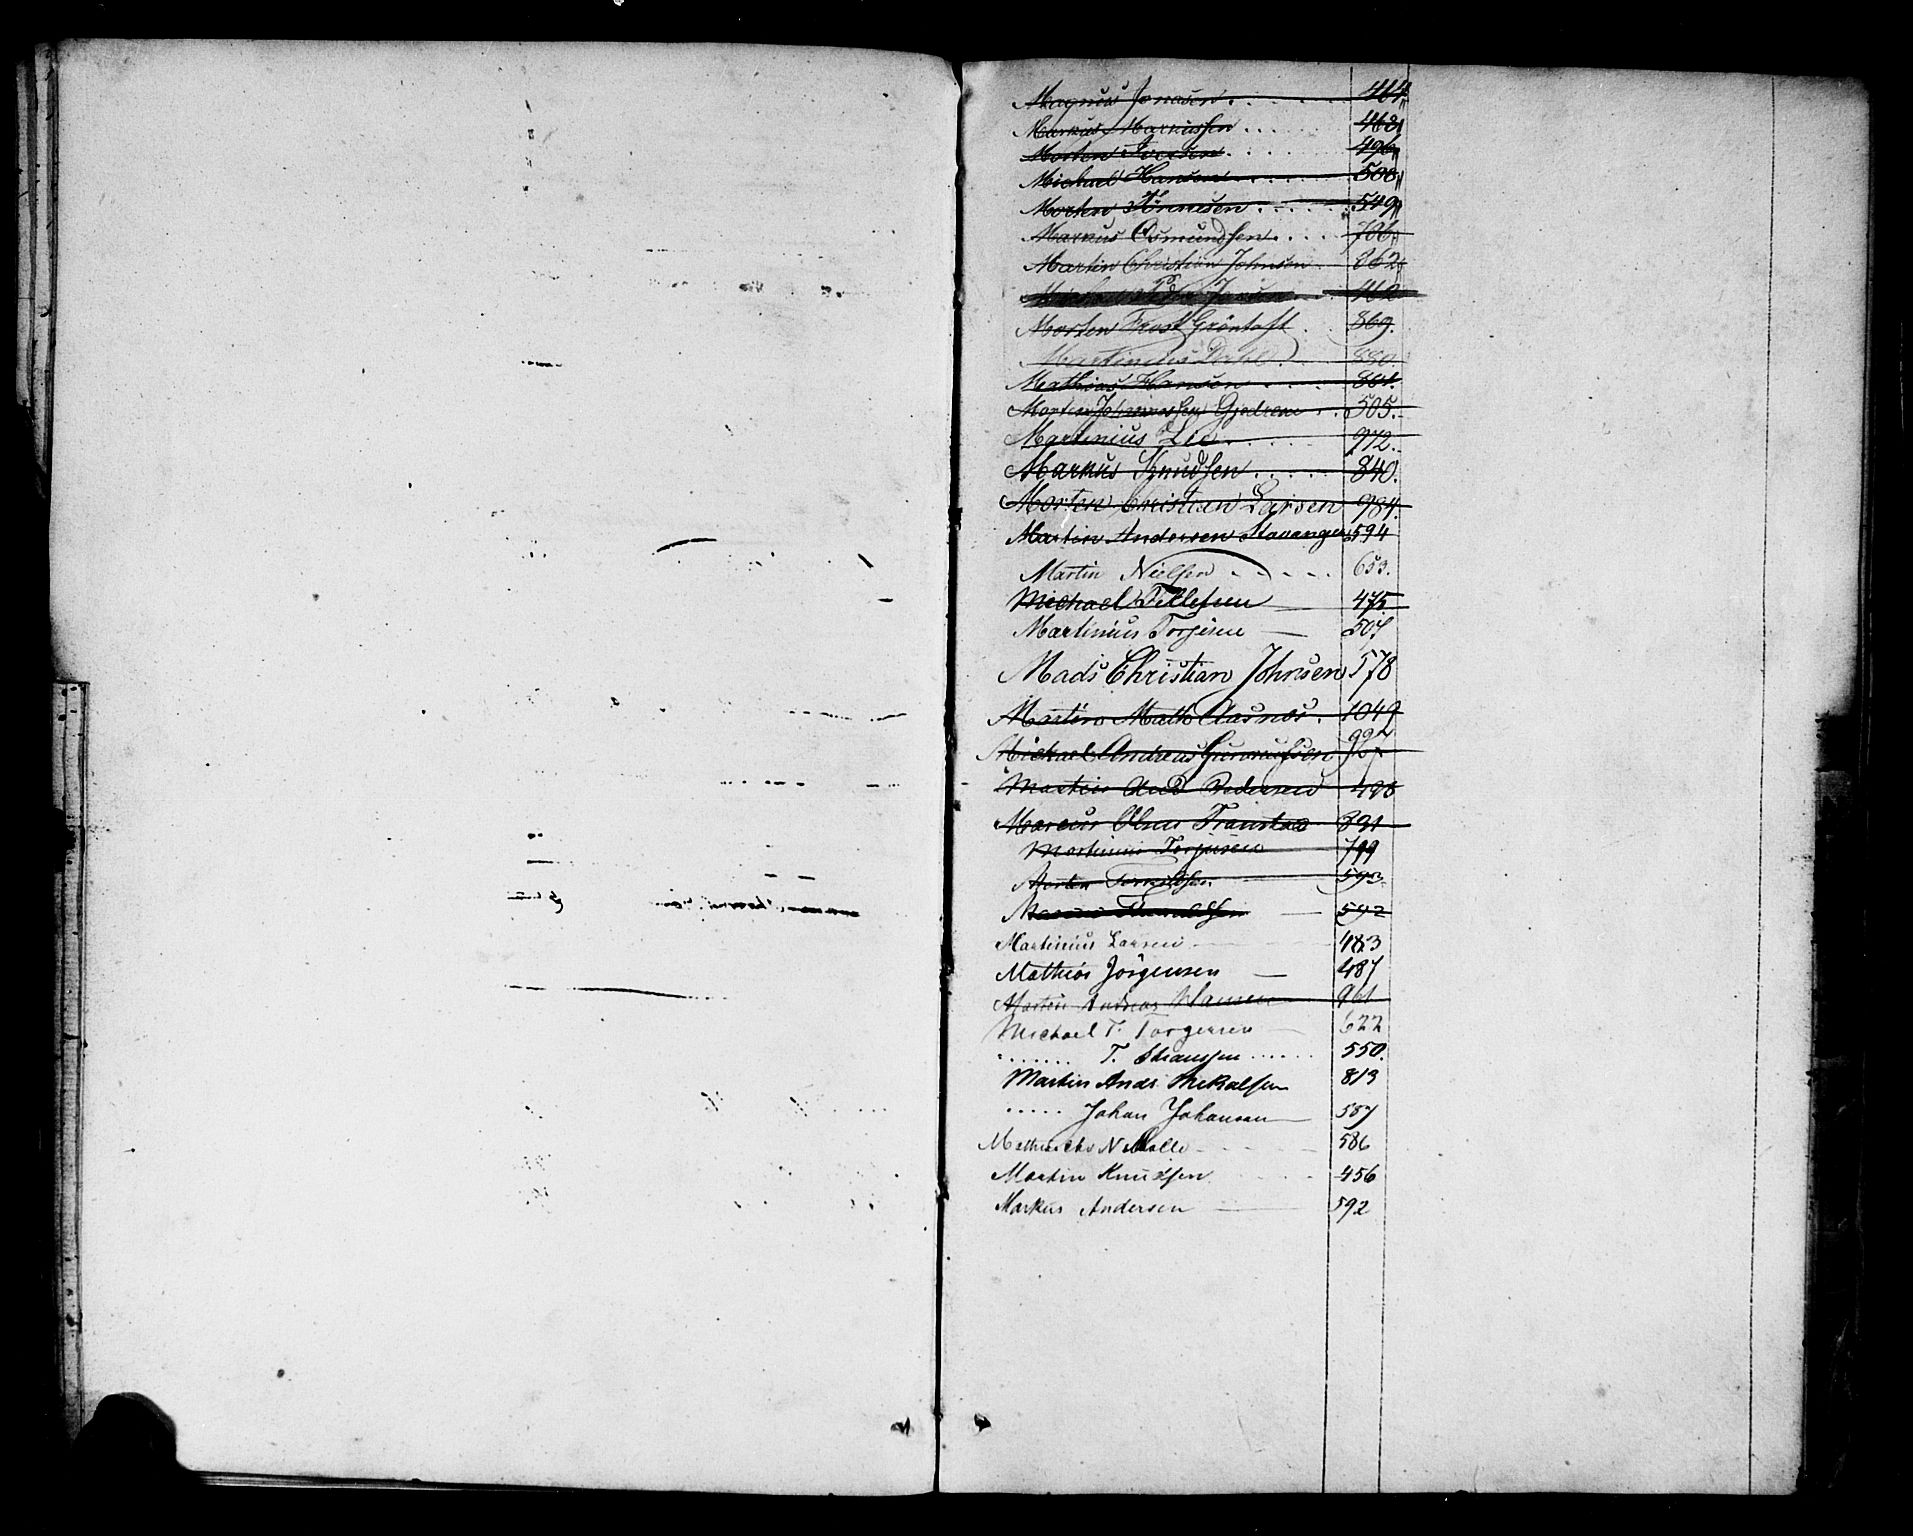 Magnus Jonasen 464
Markus Markussen 468
Morten Iversen 496
Michael Hansen 500
Morten Tönnesen 549
Markus Osmundsen 706
Martin Christian Johnsen 862
462
Morten Frost Gröntoft 869
Martinius Dahl 880
Mathias Hansen 804
Morten Johannessen Gjedrem 505
Martinius Lie 972
Markus Knudsen 840
Morten Christian Larsen 984
Martin Andersen Stavanger 594
Martin Nielsen 653
Michael Tellefsen 475
Martinius Torgisen 507
Mads Christian Johnsen 578
Martin Math Aasnes 1049
Michael Andreas Gunnufsen 992
Martin And Pedersen 498
Marcus Olsen Transtad 891
Martinius Torjusen 799
Morten Torkildsen 593
592
Martinius Larsen 483
Mathias Jörgensen 487
Martin Andreas Hansen 961
Michael T. Torgersen 622
....... T. Stianssen 550
Martin Andr Mikalsen 813
..... Johan Johansen 587
N Malle 586
Martin Knudsen 456
Markus Andersen 592